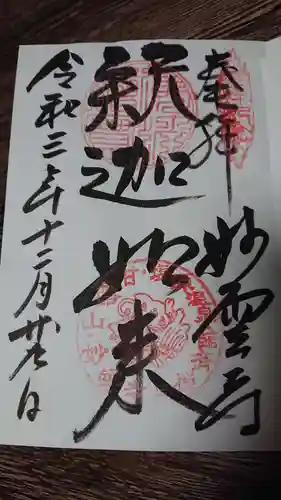 奉拝
妙雲寺
釈迦如来
令和三年十二月廿九日